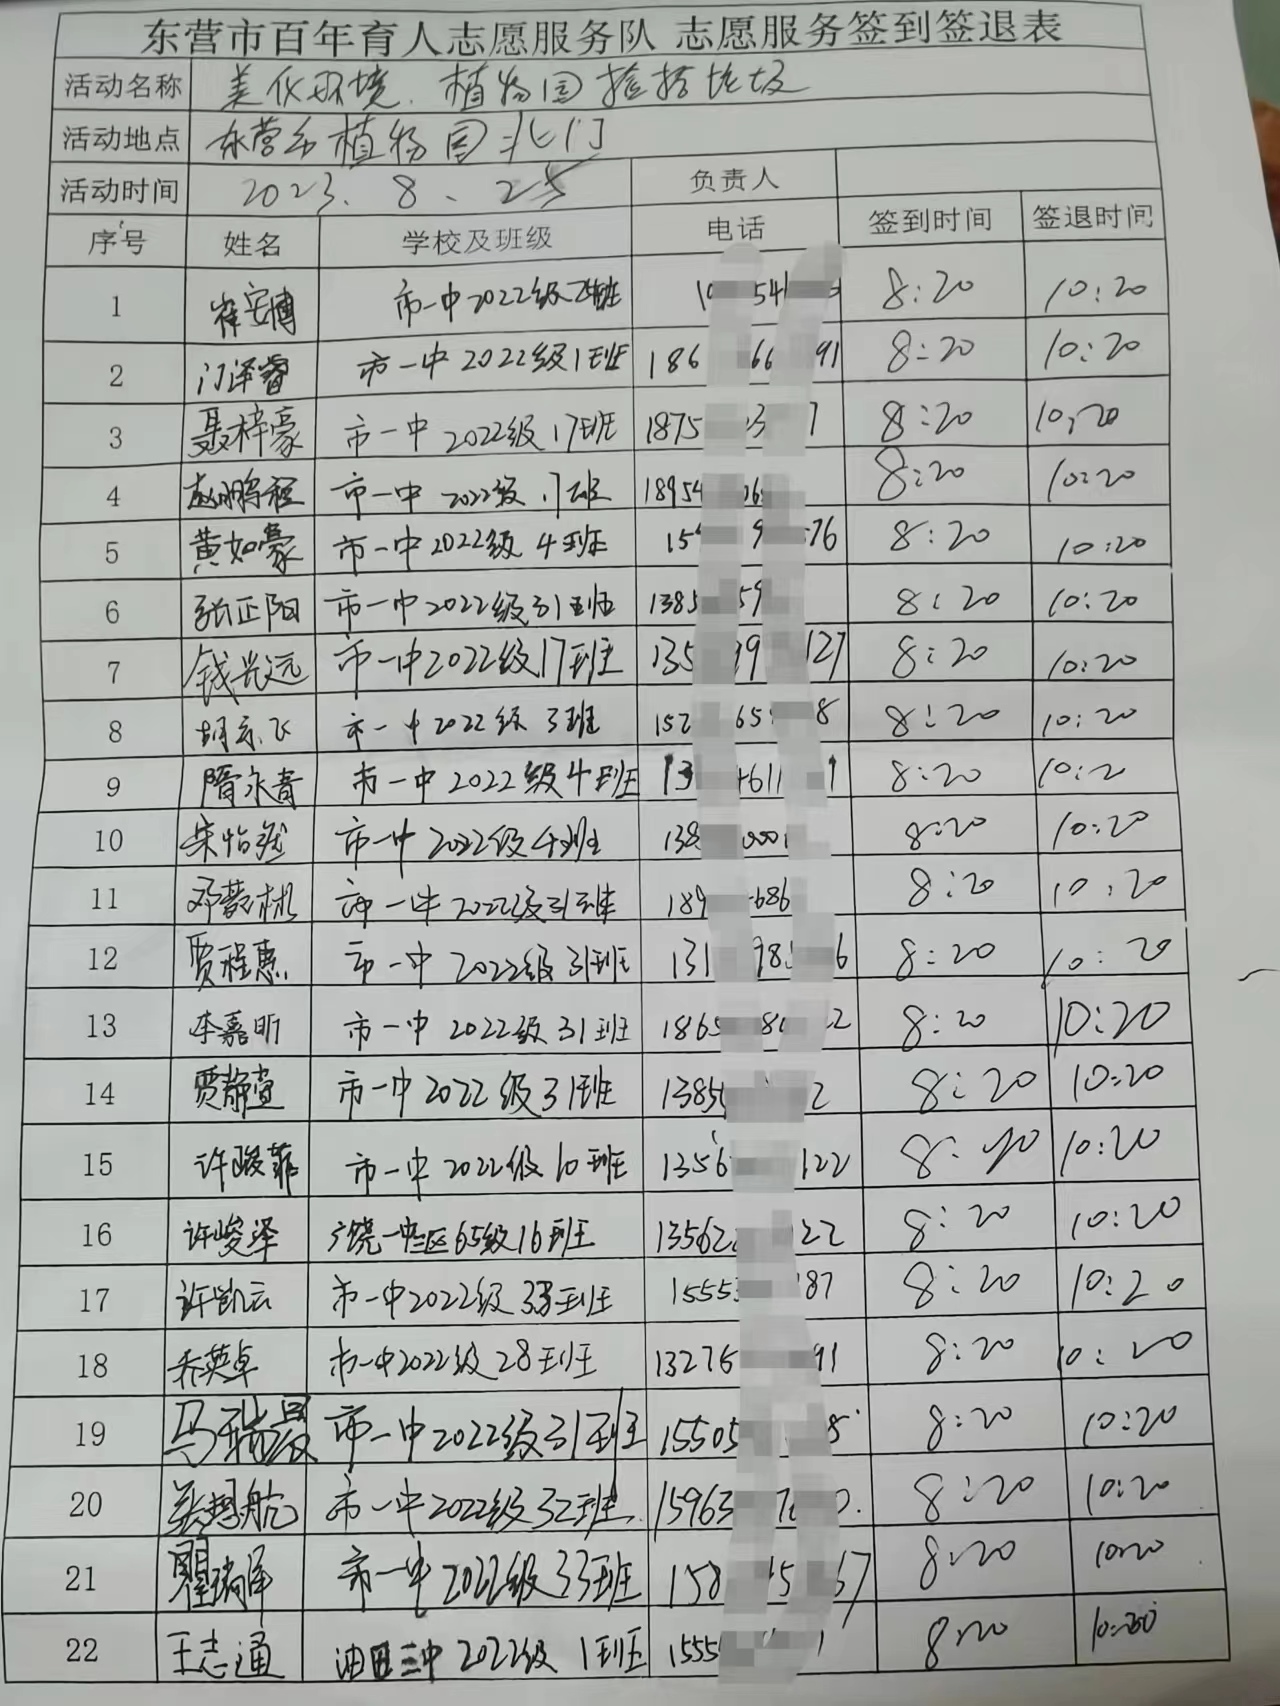 东营市百年育人志愿服务队 志愿服务签到签退表
活动名称 美化环境、植物园捡拾垃圾
活动地点 东营市植物园北门
活动时间 2023.8.25 负责人
序号 姓名 学校及班级 电话 签到时间 签退时间
1 崔安博 市一中2022级 班 8:20 10:20
2 门泽睿 市一中2022级1班 186 66 91 8:20 10:20
3 聂梓豪 市一中2022级17班 1875 3 7 8:20 10:20
4 赵鹏程 市一中2022级 班 18954 06 8:20 10:20
5 黄如豪 市一中2022级4班 15 9 76 8:20 10:20
6 张正阳 市一中2022级31班 1385 59 8:20 10:20
7 钱兴远 市一中2022级17班 135 99 127 8:20 10:20
8 胡 飞 市一中2022级3班 152 65 8 8:20 10:20
9 隋永青 市一中2022级4班 13 4611 1 8:20 10:2
10 宋怡然 市一中2022级4班 138 000 8:20 10:20
11 邓 彬 市一中2022级31班 189 686 8:20 10:20
12 贾程惠 市一中2022级31班 131 98 6 8:20 10:20
13 李嘉昕 市一中2022级31班 1865 8 2 8:20 10:20
14 贾静萱 市一中2022级31班 1385 2 8:20 10:20
15 许骏菲 市一中2022级10班 1356 122 8:20 10:20
16 许峻泽 广饶一中二区65级16班 13562 22 8:20 10:20
17 许凯云 市一中2022级33班 1555 187 8:20 10:20
18 乔英卓 市一中2022级28班 13276 91 8:20 10:20
19 马瑞晨 市一中2022级31班 15505 8 8:20 10:20
20 航 市一中2022级32班 15963 7 8:20 10:20
21 瞿瑞泽 市一中2022级33班 158 5 67 8:20 10:20
22 王志通 油田三中2022级1班 1555 1 8:20 10:20